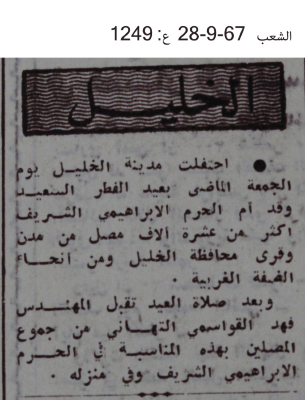 الشعب 28-9-67 ع: 1249
الخليل
● احتفلت مدينة الخليل يوم
الجمعة الماضى بعيد الفطر السعيد
وقد أم الحرم الابراهيمي الشريف
اكثر من عشرة آلاف مصل من مدن
وقرى محافظة الخليل ومن انحاء
الضفة الغربية .
وبعد صلاة العيد تقبل المهندس
فهد القواسمي التهاني من جموع
المصلين بهذه المناسبة في الحرم
الابراهيمي الشريف وفي منزله .